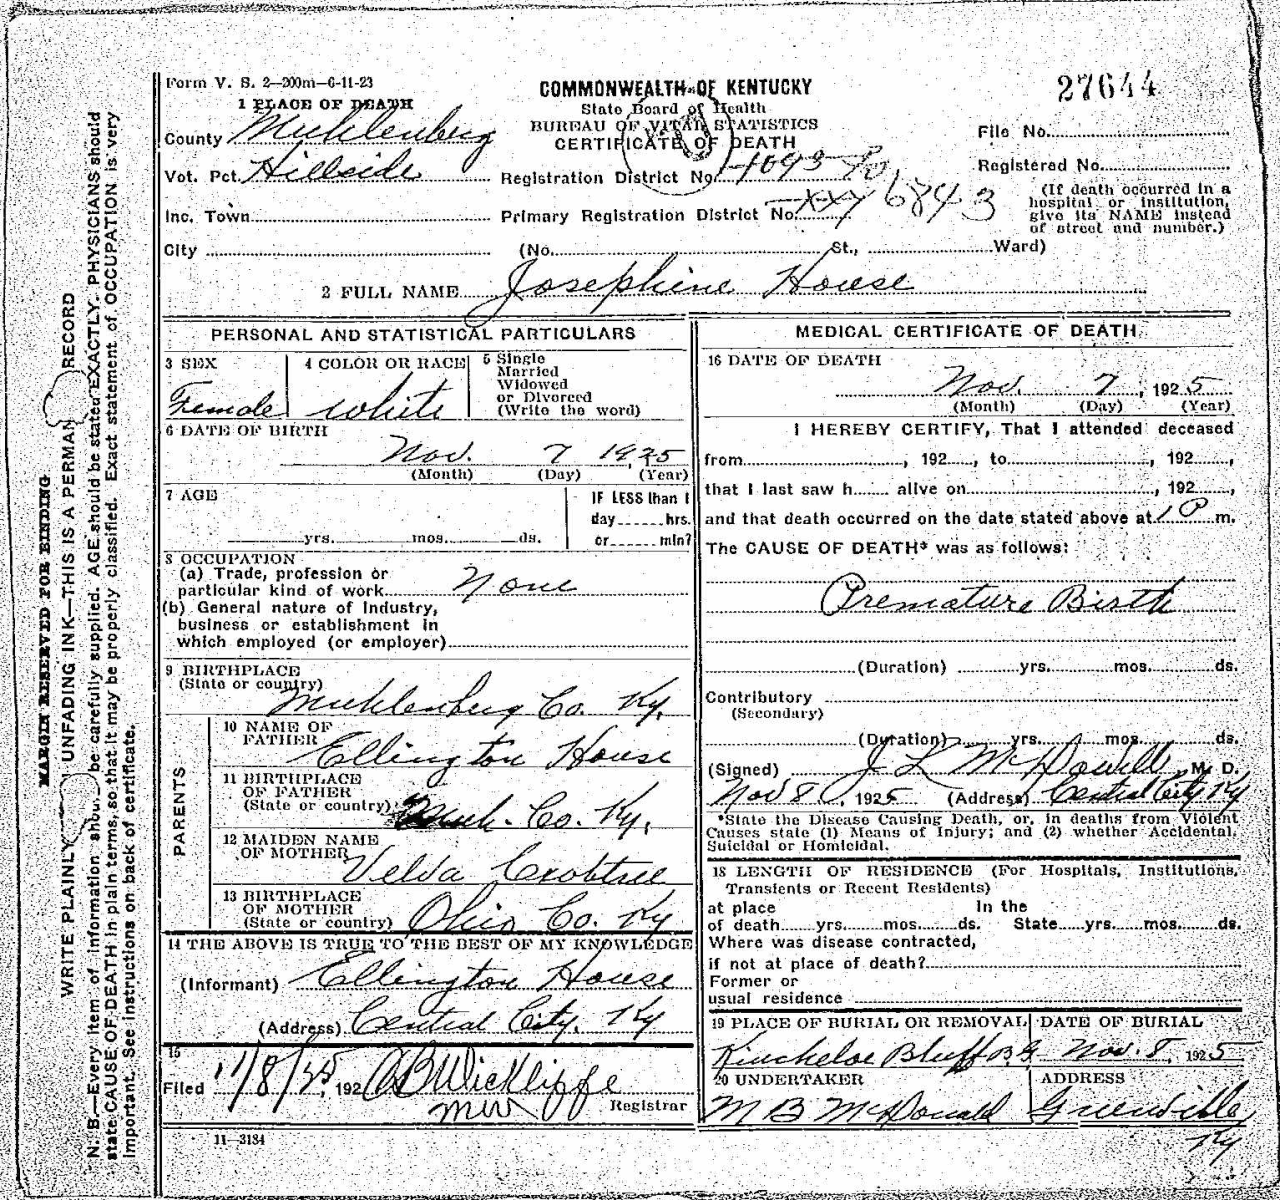 Form V. S. 2—200m—6-11-23
27644
COMMONWEALTH OF KENTUCKY
State Board of Health
BUREAU OF VITAL STATISTICS
CERTIFICATE OF DEATH
1 PLACE OF DEATH
County Muhlenberg
Vot. Pct. Hillside
Inc. Town
City
Registration District No. 1093
Primary Registration District No. 6843
(No. St., Ward)
File No.
Registered No.
(If death occurred in a
hospital or institution,
give its NAME instead
of street and number.)
2 FULL NAME Josephine House
PERSONAL AND STATISTICAL PARTICULARS
3 SEX
Female
4 COLOR OR RACE
white
5 Single
Married
Widowed
or Divorced
(Write the word)
6 DATE OF BIRTH
Nov. 7 1925
(Month) (Day) (Year)
7 AGE
yrs. mos. ds.
IF LESS than 1
day hrs.
or min?
8 OCCUPATION
(a) Trade, profession or
particular kind of work None
(b) General nature of industry,
business or establishment in
which employed (or employer)
9 BIRTHPLACE
(State or country)
Muhlenberg Co. Ky.
PARENTS
10 NAME OF
FATHER
Ellington House
11 BIRTHPLACE
OF FATHER
(State or country) Muh. Co. Ky.
12 MAIDEN NAME
OF MOTHER
Velda Crabtree
13 BIRTHPLACE
OF MOTHER
(State or country) Ohio Co. Ky
14 THE ABOVE IS TRUE TO THE BEST OF MY KNOWLEDGE
(Informant) Ellington House
(Address) Central City, Ky
15
Filed 11/8/25, 192 AB Wickliffe
mw Registrar
11—3184
MEDICAL CERTIFICATE OF DEATH
16 DATE OF DEATH
Nov. 7, 1925
(Month) (Day) (Year)
I HEREBY CERTIFY, That I attended deceased
from , 192 , to , 192 ,
that I last saw h alive on , 192 ,
and that death occurred on the date stated above at 1 P m.
The CAUSE OF DEATH* was as follows:
Premature Birth
(Duration) yrs. mos. ds.
Contributory
(Secondary)
(Duration) yrs. mos. ds.
(Signed) J L McDowell M. D.
Nov 8, 1925 (Address) Central City Ky
*State the Disease Causing Death, or, in deaths from Violent
Causes state (1) Means of Injury; and (2) whether Accidental,
Suicidal or Homicidal.
18 LENGTH OF RESIDENCE (For Hospitals, Institutions,
Transients or Recent Residents)
at place In the
of death yrs. mos. ds. State yrs. mos. ds.
Where was disease contracted,
if not at place of death?
Former or
usual residence
19 PLACE OF BURIAL OR REMOVAL
Kincheloe Bluff B.G.
DATE OF BURIAL
Nov. 8, 1925
20 UNDERTAKER
M B McDonald
ADDRESS
Greenville
Ky
MARGIN RESERVED FOR BINDING
WRITE PLAINLY UNFADING INK—THIS IS A PERMAN RECORD
N. B.—Every item of information shou be carefully supplied. AGE should be stated EXACTLY. PHYSICIANS should
state CAUSE OF DEATH in plain terms, so that it may be properly classified. Exact statement of OCCUPATION is very
important. See instructions on back of certificate.